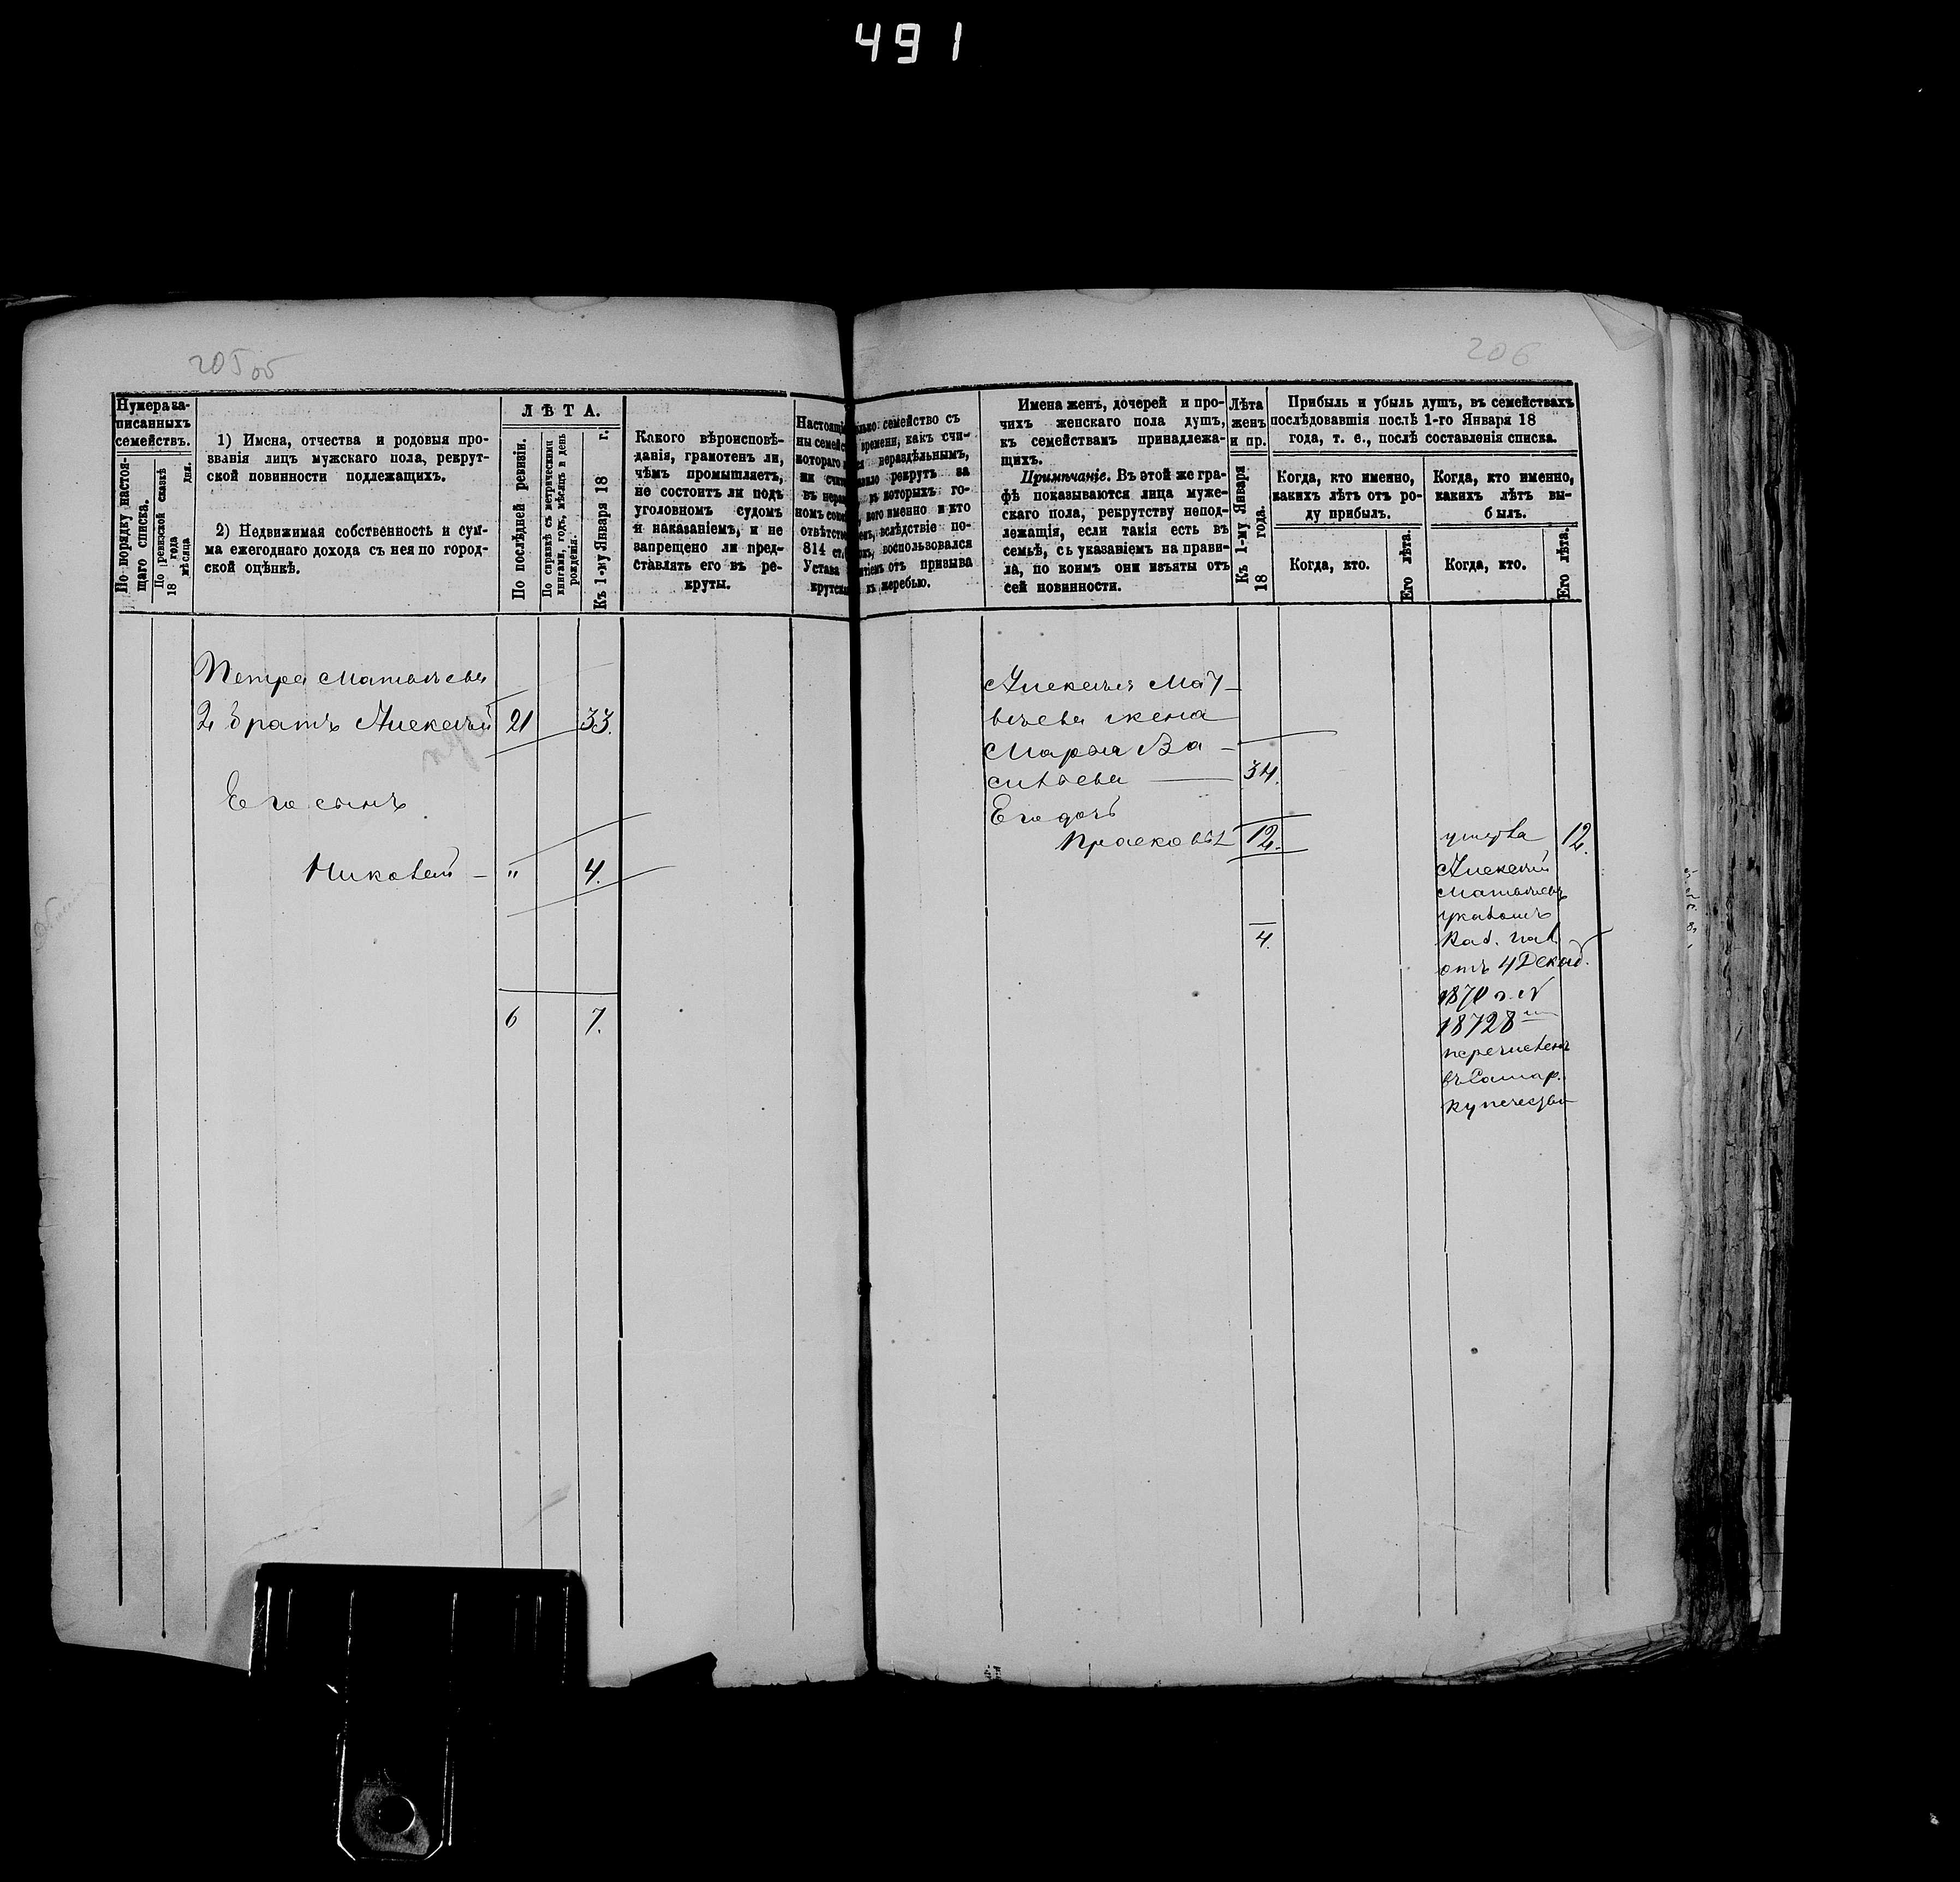 491
205 об
206
Нумера за-
писанныхъ
семействъ.
По порядку настоя-
щаго списка.
По ревизской сказкѣ
18 года
мѣсяца дня.
1) Имена, отчества и родовыя про-
званія лицъ мужскаго пола, рекрут-
ской повинности подлежащихъ.
2) Недвижимая собственность и сум-
ма ежегоднаго дохода съ нея по город-
ской оцѣнкѣ.
ЛѢТА.
По послѣдней ревизіи.
По справкѣ съ метрическими
книгами, годъ, мѣсяцъ и день
рожденія.
Къ 1-му Января 18 г.
Какого вѣроисповѣ-
данія, грамотенъ ли,
чѣмъ промышляетъ,
не состоитъ ли подъ
уголовномъ судомъ
и наказаніемъ, и не
запрещено ли пред-
ставлять его въ ре-
круты.
Настоящі
ны семейс
котораго
ни счит
въ нераз
номъ сово
отвѣтстве
814 ст.
Устава
крутски
семейство съ
времени, какъ счи-
нераздѣльнымъ,
рекрутъ за
въ которыхъ го-
кого именно и кто
вслѣдствіе по-
воспользовался
отъ призыва
къ жеребью.
Имена женъ, дочерей и про-
чихъ женскаго пола душъ,
къ семействамъ принадлежа-
щихъ.
Примѣчаніе. Въ этой же гра-
фѣ показываются лица муже-
скаго пола, рекрутству непод-
лежащія, если такія есть въ
семьѣ, съ указаніемъ на прави-
ла, по коимъ они изъяты отъ
сей повинности.
Лѣта
женъ
и пр.
Къ 1-му Января
18 года.
Прибыль и убыль душъ, въ семействахъ
послѣдовавшія послѣ 1-го Января 18
года, т. е., послѣ составленія списка.
Когда, кто именно,
какихъ лѣтъ отъ ро-
ду прибылъ.
Когда, кто именно,
какихъ лѣтъ вы-
былъ.
Когда, кто.
Его лѣта.
Когда, кто.
Его лѣта.
Петра Матвѣева
2й братъ Алексѣй 21 33.
Его сынъ
Николай – " 4.
6 7.
Алексѣя Мат-
вѣева жена
Марья Ва-
сильева 34.
Его дочь
Прасковья 12.
4.
умерла 12.
Алексѣй
Матвѣевъ
указомъ
Каз. пал.
отъ 4 Декаб.
1870 г. №
18728
перечисленъ
въ Самар.
купечество